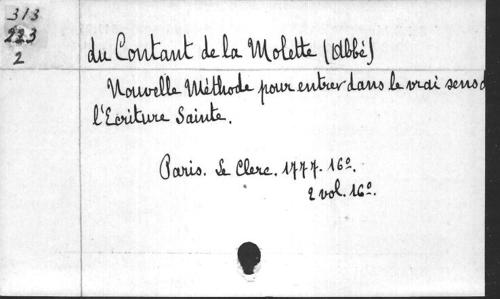 313
223
2
du Contant de la Molette (Abbé)
Nouvelle Méthode pour entrer dans le vrai sens d
l'Ecriture Sainte.
Paris. Le Clerc. 1777. 16º.
2 vol. 16º.